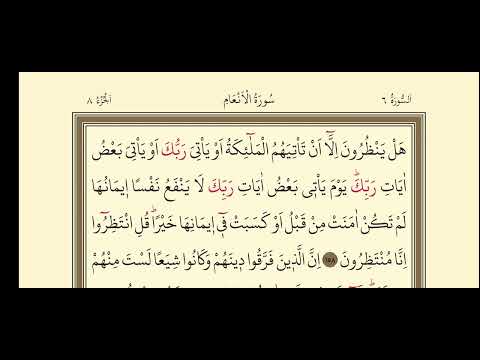 اَلسُّورَةُ ٦ سُورَةُ الْاَنْعَامِ اَلْجُزْءُ ٨
هَلْ يَنْظُرُونَ اِلَّٓا اَنْ تَأْتِيَهُمُ الْمَلٰٓئِكَةُ اَوْ يَأْتِيَ رَبُّكَ اَوْ يَأْتِيَ بَعْضُ
اٰيَاتِ رَبِّكَۜ يَوْمَ يَأْت۪ي بَعْضُ اٰيَاتِ رَبِّكَ لَا يَنْفَعُ نَفْسًا ا۪يمَانُهَا
لَمْ تَكُنْ اٰمَنَتْ مِنْ قَبْلُ اَوْ كَسَبَتْ ف۪ٓي ا۪يمَانِهَا خَيْرًاۜ قُلِ انْتَظِرُٓوا
اِنَّا مُنْتَظِرُونَ ١٥٨ اِنَّ الَّذ۪ينَ فَرَّقُوا د۪ينَهُمْ وَكَانُوا شِيَعًا لَسْتَ مِنْهُمْ